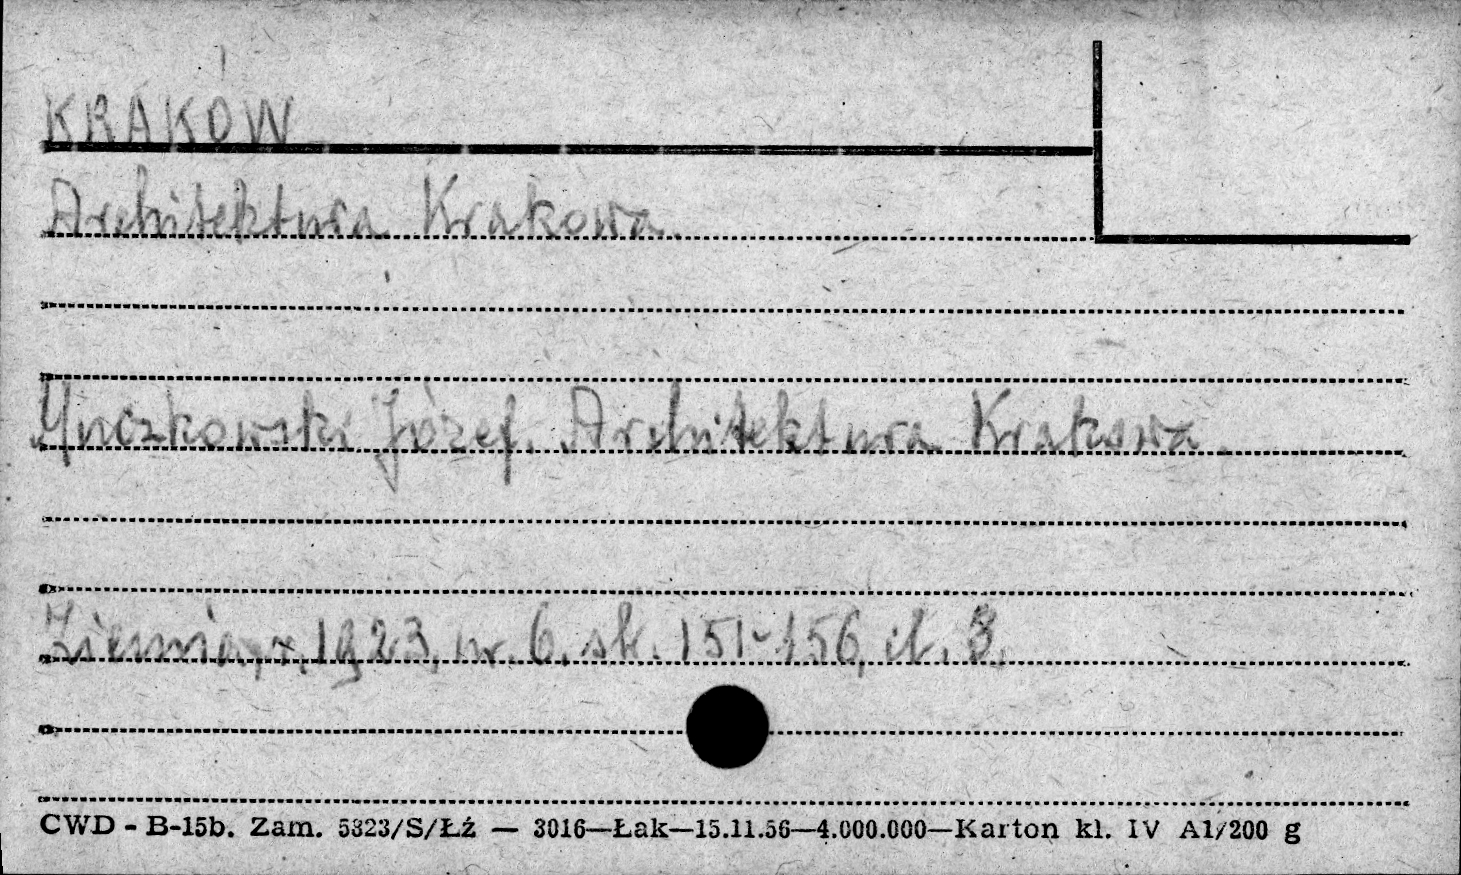 KRAKÓW
Architektura Krakowa.
Muczkowski Józef. Architektura Krakowa
Ziemia, r. 1923, nr. 6. str. 151-156, il. 3.
CWD - B-15b. Zam. 5323/S/Łź — 3016—Łak—15.11.56—4.000.000—Karton kl. IV A1/200 g